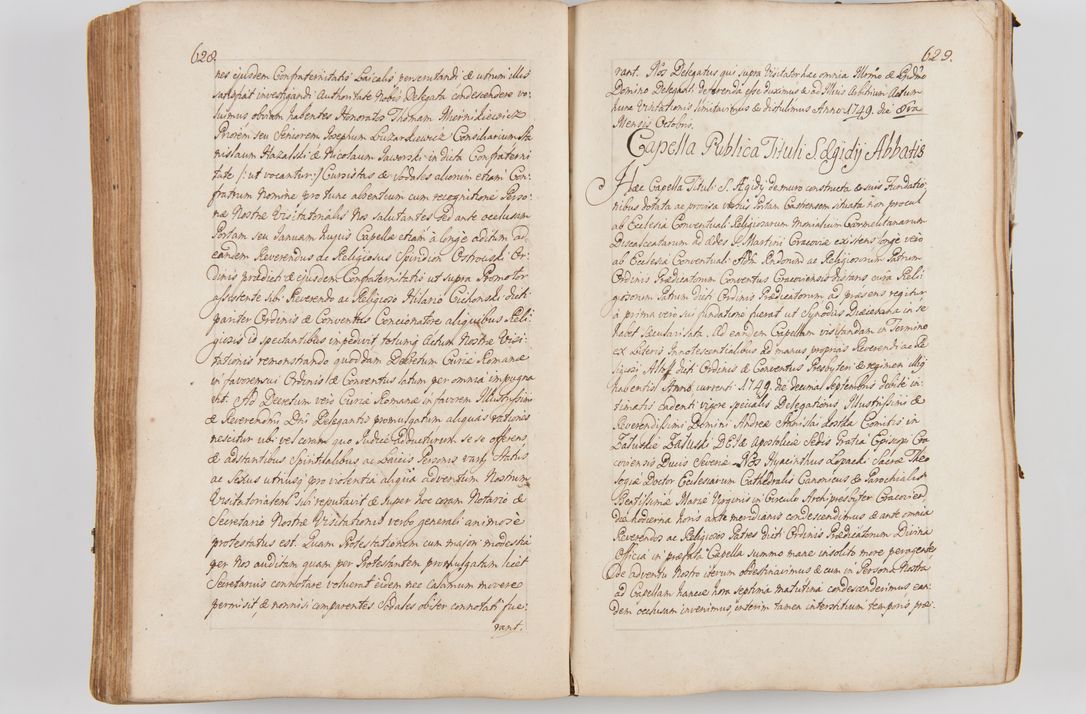 628.
nes ejusdem Confraternitatis Laicalis perscrutandi & utrum illis
satisfiat investigandi Authoritate Nobis Delegata condescendere vo-
luimus obviam habentes Honoratos Thomam
Priorem seu Seniorem Josephum Consiliarium Sta
nislaum & Nicolaum Jaworski in dicta Confraterni
tate /: ut vocantur :/ Cursistas & Sodales aliorum etiam Con-
fratrum Nomine pro tunc absentium cum recognitione Perso-
næ Nostræ Visitatorialis Nos salutantes sed ante occlusam
Portam seu Januam hujus Capellæ etiam à longè aditum ad
eandem Reverendus & Religiosus Ostrowski Or-
dinis prædicti & ejusdem Confraternitatis ut supra Promotor
assistente sibi Reverendo ac Religioso Hilario Cichonski dicti
pariter Ordinis & Conventus Concionatore aliquibus Reli
giosis id spectantibus impedivit totumq Actum Nostræ Visi-
tationis remonstrando quoddam Decretum Curiæ Romanæ
in favorem sui Ordinis & Conventus latum per omnia impugna
vit. Ad Decretum verò Curiæ Romanæ in favorem Illustrissimi
& Reverendmi Dni Delegantis promulgatum aliquas rationes
nescitur ubi vel coram quo Judice adducturum se se offerens
& adstantibus Spiritualibus ac Laicis Personis varij Status
ac Sexus utriusq pro violentia aliqua adventum Nostrum
Visitatorialem Sibi reputavit & super hoc coram Notario &
Secretario Nostræ Visitationis verbo generali animosè
protestatus est. Quam Protestationem cum majori modestia
per Nos auditam quam per Protestantem promulgatam licet
Secretarius connotare voluerat eidem nec Calamum movere
permisit, & nonnisi comparentes Sodales obiter connotati fue-
rant.
629.
rant. Nos Delegatus qui supra Visitator hæc omnia Illsmo & Rdsmo
Domino Deleganti deferenda esse duximus & ad Illius Arbitrium Actum
hunc Visitationis limitavimus & distulimus Anno 1749. die 8va
Mensis Octobris.
Capella Publica Tituli S. Ægidij Abbatis
Hæc Capella Tituli S. Ægidij de muro constructa & suis Fundatio
nibus dotata ac provisa versus Portam Castrensem situata non procul
ab Ecclesia Conventuali Religiosarum Monialium Carmelitanarum
Discalceatarum ad ædes S. Martini Cracoviæ existens longè verò
ab Ecclesia Conventuali Adm Rndorum ac Religiosorum Patrum
Ordinis Prædicatorum Conventus Cracoviensis distans cura Reli
giosorum Patrum dicti Ordinis Prædicatorum ad præsens regitur
à prima verò sui fundatione fuerat ut Synodus Diæcesana in se
habet Sæcularisata. Ad eandem Capellam visitandam in Termino
ex Literis Innotescentialibus ad manus proprias Reverendi ac Re
ligiosi dicti Ordinis & Conventus Presbyteri & regimen illiq
habentis Anno currenti 1749. die decima Septembris debitè in-
timatis cadenti vigore specialis Delegationis Illustrissimi &
Reverendissimi Domini Andreæ Stanislai Kostka Comitis in
Zaluskie Zaluski DEI & Apostolicæ Sedis Gratia Episcopi Cra
coviensis Ducis Severiæ. Nos Hyacinthus Lopacki Sacræ Theo
logiæ Doctor Ecclesiarum Cathedralis Canonicus & Parochialis
Mariæ Virginis in Circulo Archipresbyter Cracovien.
die hodierna horis ante meridianis condescendimus & ante omnia
Reverendos ac Religiosos Patres dicti Ordinis Prædicatorum Divina
Officia in præfata Capella summo mane insolito more peragentes
de adventu Nostro iterum obtestinavimus & cum in Persona Nostra
ad Capellam hancce hora septima matutina condescenderimus ean-
dem occlusam invenimus, interim tamen interstitium temporis præ-